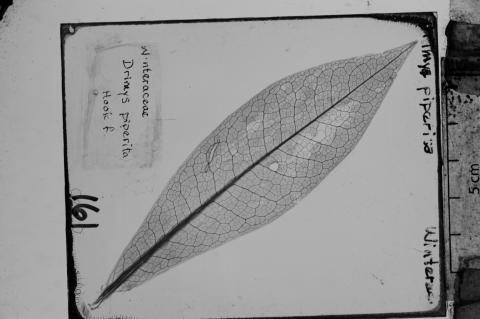 Winteraceae
Drimys piperita
Hook f.
161
rimys piperita
Wintera
5cm